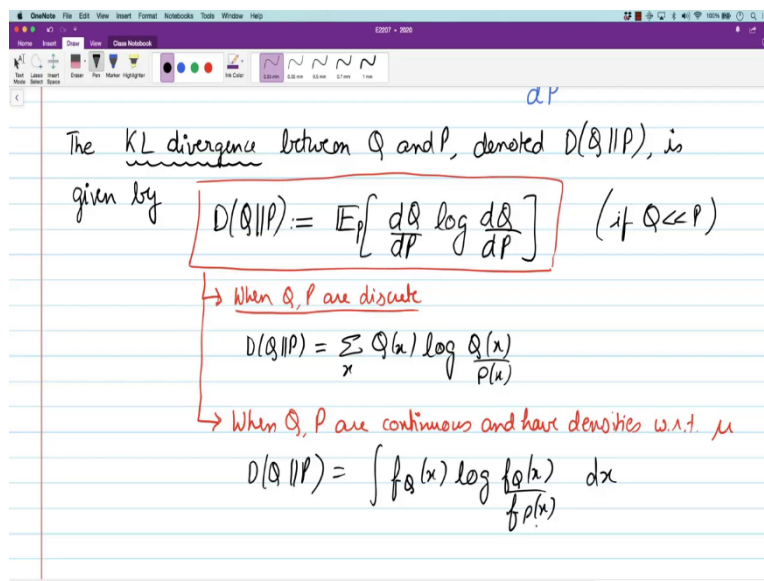 OneNote File Edit View Insert Format Notebooks Tools Window Help 100%
E2207 - 2020
Home Insert Draw View Class Notebook
Text Mode Lasso Select Insert Space Eraser Pen Marker Highlighter Ink Color 0.25 mm 0.35 mm 0.5 mm 0.7 mm 1 mm
dP
The KL divergence between Q and P, denoted D(Q||P), is
given by D(Q||P) := E_P[ dQ/dP log dQ/dP ] (if Q<<P)
↳ When Q, P are discrete
D(Q||P) = Σ_x Q(x) log Q(x)/P(x)
↳ When Q, P are continuous and have densities w.r.t. μ
D(Q||P) = ∫ f_Q(x) log f_Q(x)/f_P(x) dx